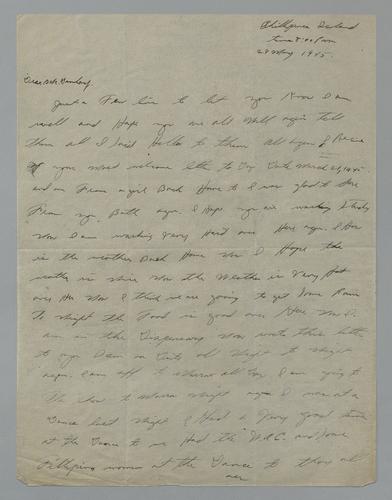 Phillipines Island
time 8:00 Pm
28 May 1945.
Dear
Just a Few line to let you Know I am
well and Hope you are all Well again tell
them all I Said Hello to them all again I Receive
your most welcome letter to Day Date March 29, 1945
and one From a girl Back Home to I was glad to Hear
From you Both again. I Hope you are working
Now I am working Very Hard over Here again. I How
is the weather Back Home Now I Hope the
weather is nice Now the Weather is Very Hot
over Here Now I think we are going to get Some Rain
To Night the Food is good over Here Now I
am in the Dispensary Now wrote this letter
to you I am on Duty all Night to Night
again. I am off to morrow all Day I am going to
the Show to Morrow Night again I was at a
Dance last Night I Had a Very good time
at the Dance to we Had the W.A.C. and Some
Phillipines women at the Dance to they all
are